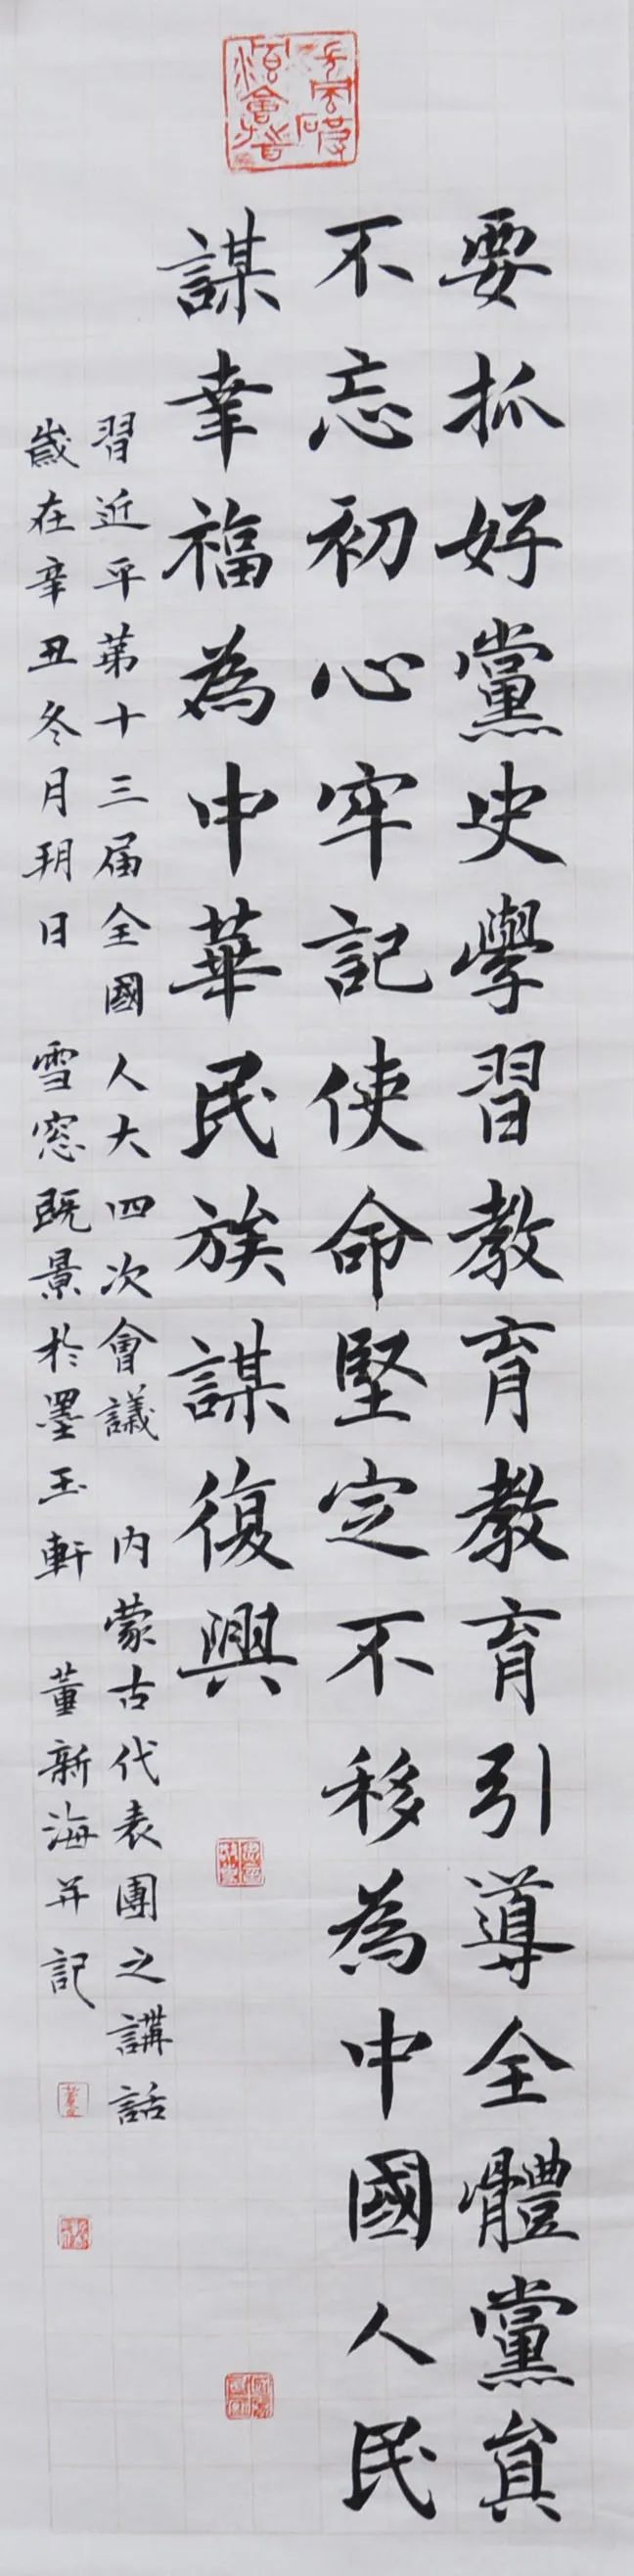 要抓好黨史學習教育教育引導全體黨員
不忘初心牢記使命堅定不移為中國人民
謀幸福為中華民族謀復興
習近平第十三届全國人大四次會議 内蒙古代表團之講話
歲在辛丑冬月朔日 雪窓既景於墨玉軒 董新海并記